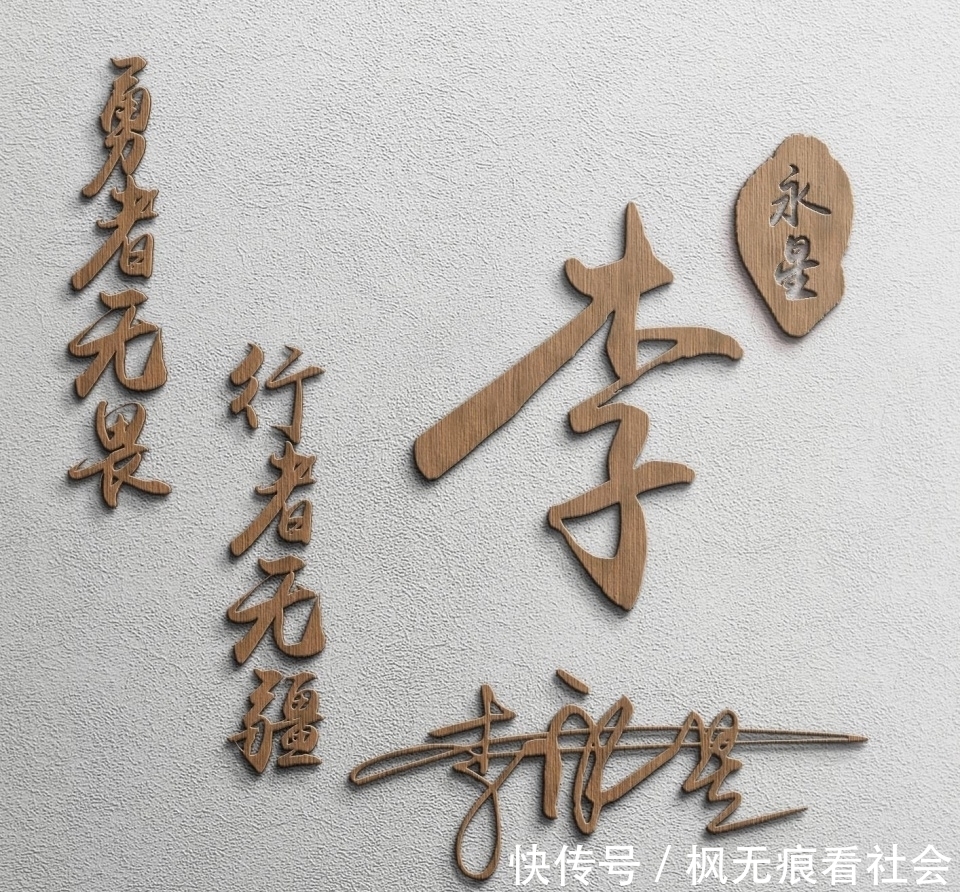 永星
李
行者无疆
勇者无畏
李永星
快传号 / 枫无痕看社会